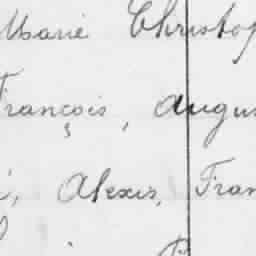 Marie Christop
François, Augus
, Alexis, Fran